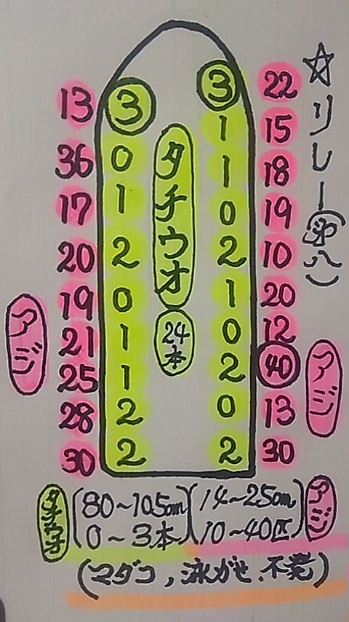 ☆リレー
13 3 3 22
1 15
36 0 1 18
17 1 0 19
20 2 2 10
19 0 1 20
21 1 0 12
25 1 2 40
28 2 0 13
30 2 2 30
タチウオ
24本
アジ
アジ
タチウオ (80~105cm) (14~25cm) アジ
0~3本 10~40匹
(マダコ, 泳がせ, 不発)